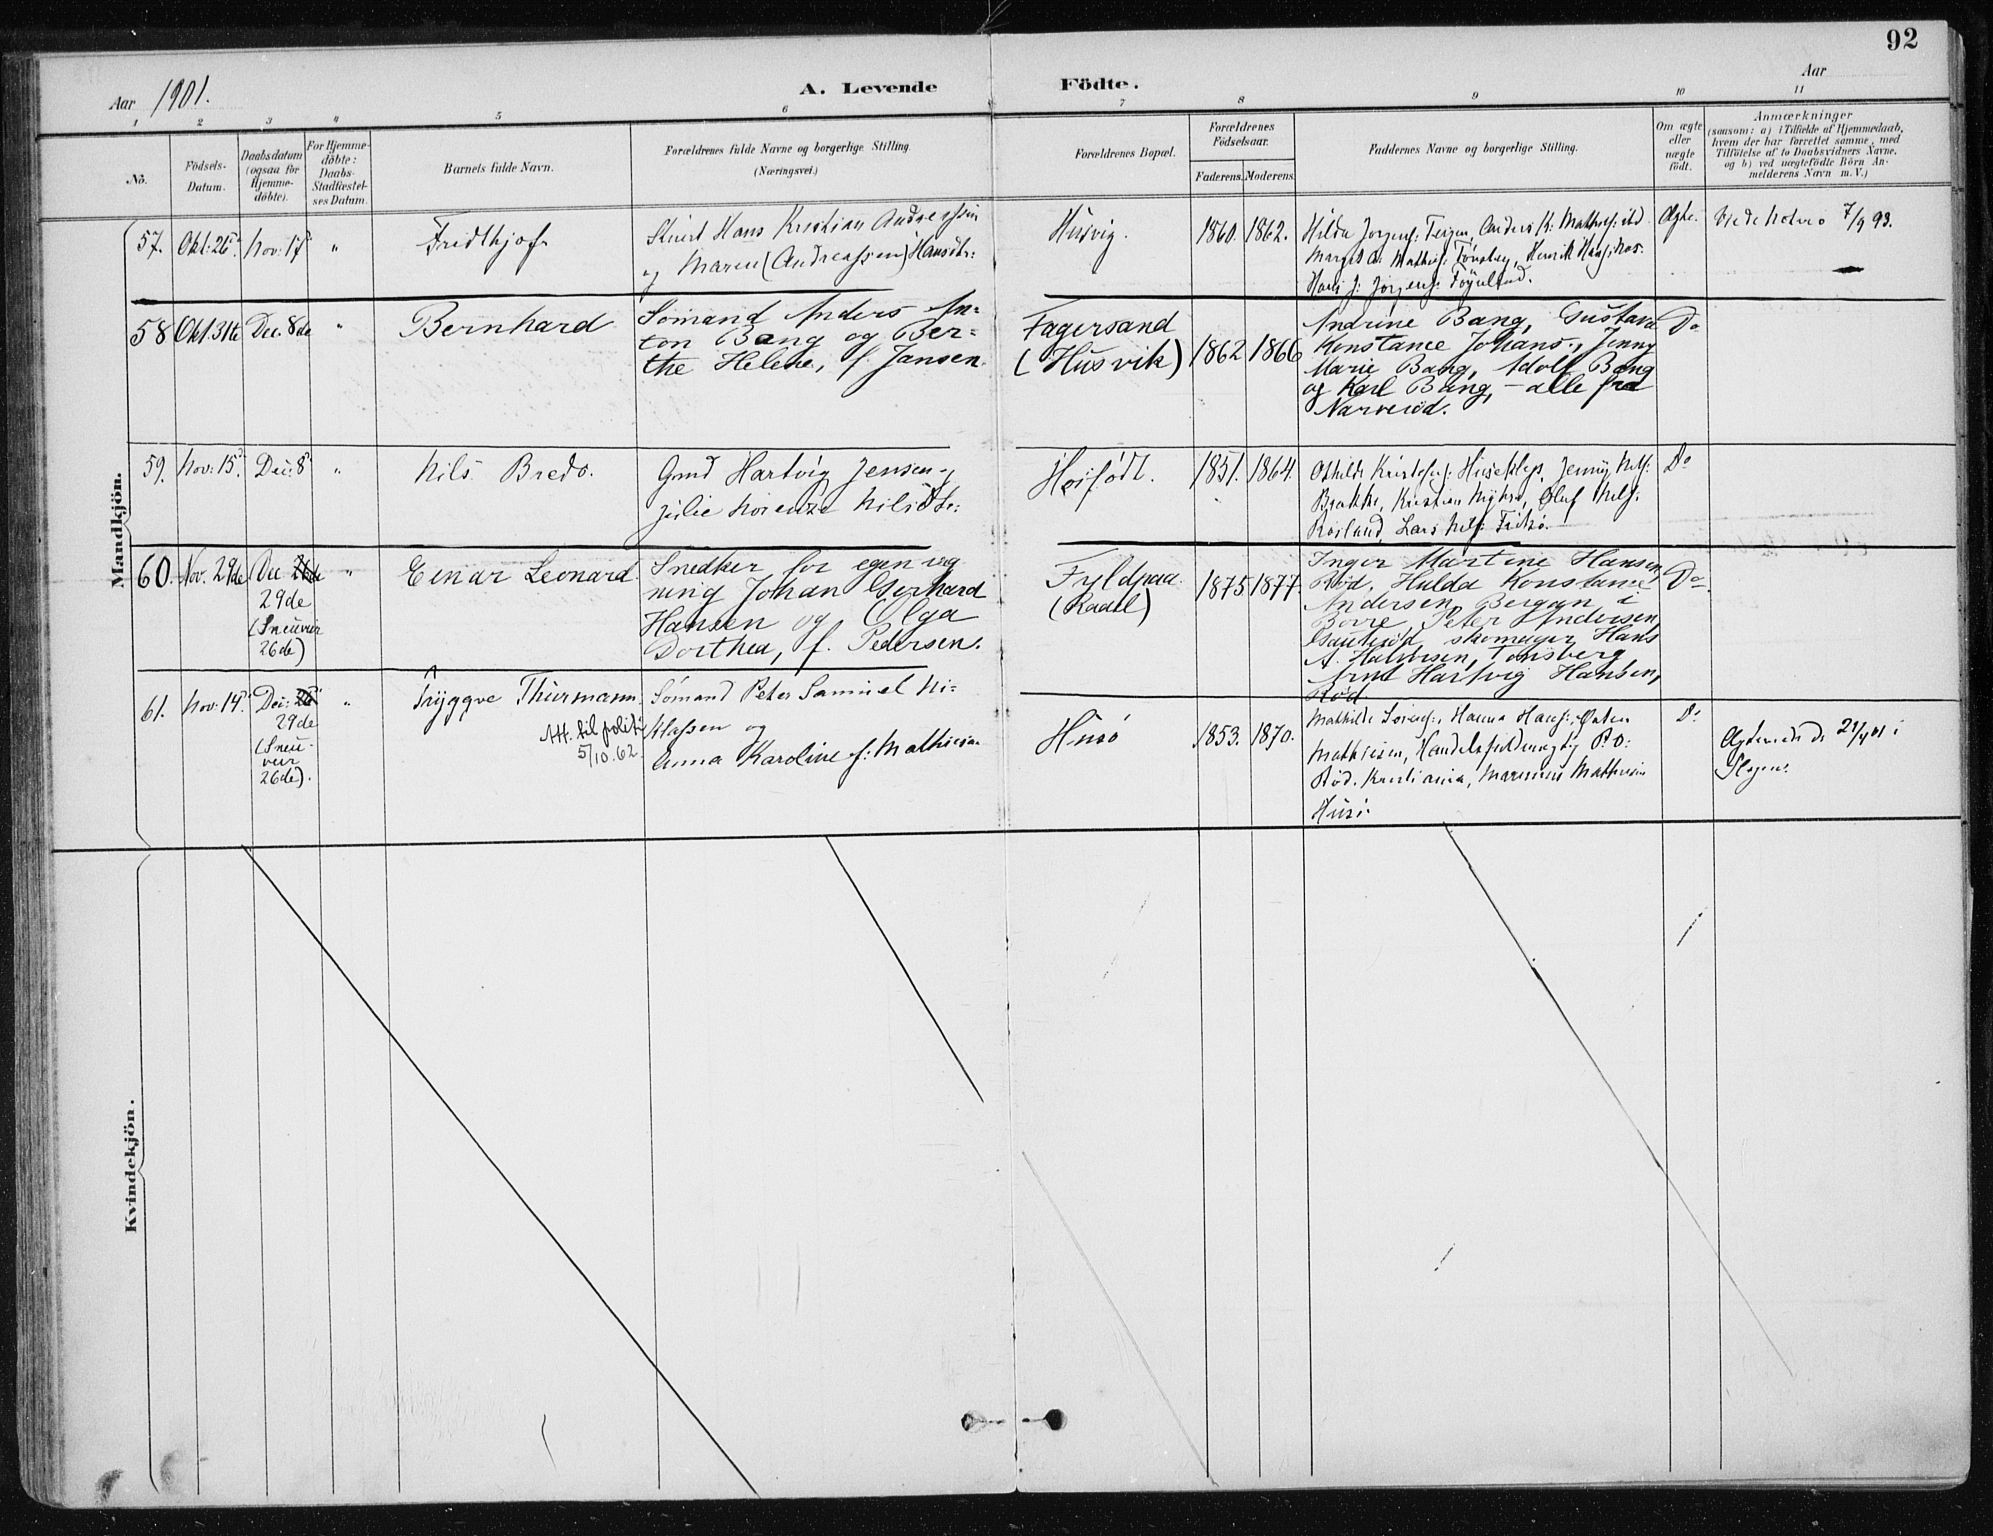 92
Aar 1901.
A. Levende Födte.
Aar
1 2 3 4 5 6 7 8 9 10 11
No.
Födsels-Datum.
Daabsdatum (ogsaa for Hjemme-döbte).
For Hjemme-döbte: Daabs-Stadfæstel-ses Datum.
Barnets fulde Navn.
Forældrenes fulde Navne og borgerlige Stilling.
(Næringsvei.)
Forældrenes Bopæl.
Forældrenes Födselsaar.
Faderens. Moderens.
Faddernes Navne og borgerlige Stilling.
Om ægte eller uægte født.
Anmærkninger
(saasom: a) i Tilfælde af Hjemmedaab,
hvem der har forrettet samme, med
Tilföielse af to Daabsvidners Navne,
og b) ved uægtefödte Börn An-
melderens Navn m. V.)
Mandkjön.
57. Okt: 25 Nov: 17 " Fridthjof
Hans Kristian Andreassen
og Maren (Andreassen) Hansdtr:
Husvig.
1860. 1862.
Hilda Jørgens: Teigen, Anders K: Mathis: ibd
Margit Mathis: Tønsberg, Henrik Hans: Nes.
Hans J: Jørgens:
Ægte.
7/9 93.
58 Okt. 31te Dec. 8de " Bernhard
Sømand Anders An-
ton Bang og Ber-
the Helene, f Jansen.
Fagersand
(Husvik)
1862 1866
Andrine Bang, Gustava
Konstance Johans., Jenny
Marie Bang, Adolf Bang
og Karl Bang, - alle fra
Narverød.
Do
59. Nov: 15d Dec: 8 " Nils Bredo.
Gmd Hartvig Jensen og
Julie Lorense Nilsdtr:
Høifødt.
1851. 1864.
Othilde Kristofs: Huseklep, Jenny Nils:
Brekke, Kristian Oluf Nils:
Rosland, Lars Nils:
Do
60. Nov. 29de Dec 26de " Einar Leonard
29de
(Sneveir
26de)
Snedker for egen reg
ning Johan Gerhard
Hansen og Olga
Dorthea, f. Pedersen.
Fyldpaa
(Raael)
1875 1877.
Inger Martine Hansen,
Rød, Hulda Konstance
Andersen Bergan i
Borre, Peter Andersen,
skomager Hans
A. Halvorsen, Tønsberg
Arnt Hartvig Hansen,
Rød
Do
61. Nov: 14d Dec: 26 " Tryggve Thurmann
29de
(Sneu-
veir
26de).
Att. til politi
5/10.62.
Sømand Peter Samuel Ni-
klassen og
Anna Karoline f: Mathisen
Husø
1853. 1870.
Mathilde Sørens:, Hanna Hans:, Østen
Mathisen, Handelsfuldmægtig P. O:
Rød. Kristiania, Marinius Mathisen
Husø.
Do
21/4 01 i
Slagen.
Kvindekjön.